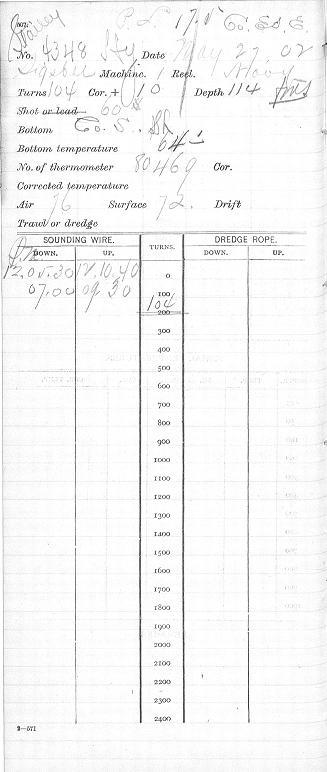 P. L. 17.5' Co. Sd. E.
No. 4348 Hy. Date May 27, 02
Sigsbee Machine. Reel.
Turns 104 Cor. + 10 Depth 114 fms
Shot or lead 60 #
Bottom Co. S.
Bottom temperature 64
No. of thermometer 80469 Cor.
Corrected temperature
Air 76 Surface 72. Drift
Trawl or dredge
SOUNDING WIRE. TURNS. DREDGE ROPE.
DOWN. UP. DOWN. UP.
12.05.30 12.10.40 0
07.00 09.30 100
104
200
300
400
500
600
700
800
900
1000
1100
1200
1300
1400
1500
1600
1700
1800
1900
2000
2100
2200
2300
2400
2—571